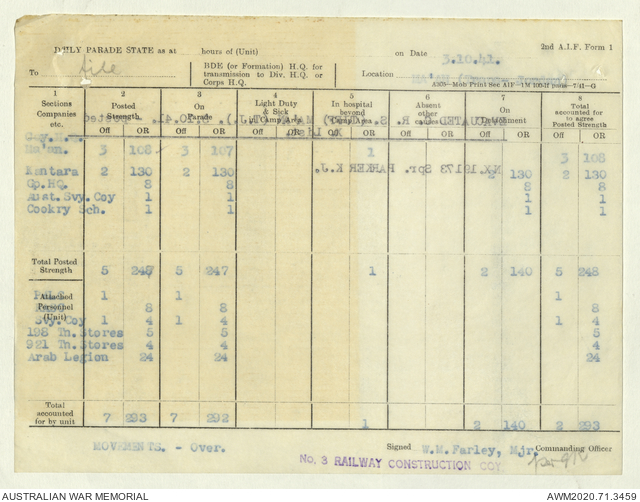 DAILY PARADE STATE as at hours of (Unit) on Date 3.10.41. 2nd A.I.F. Form 1
To file BDE (or Formation) H.Q. for transmission to Div. H.Q. or Corps H.Q. Location
A305—Mob Print Sec AIF—1M 100-lf pads—7/41—G
1 2 3 4 5 6 7 8
Sections Companies etc. Posted Strength On Parade Light Duty & Sick in Camp Lines In hospital beyond Camp Area Absent other causes On Detachment Total accounted for to agree Posted Strength
Off OR Off OR Off OR Off OR Off OR Off OR Off OR
Coy H.Q.
Ma'an. 3 108 3 107 1 3 108
Kantara 2 130 2 130 2 130 2 130
NX.19173 Spr. PARKER K.J.
Gp.HQ. 8 8 8 8
Aust.Svy.Coy 1 1 1 1
Cookry Sch. 1 1 1 1
Total Posted Strength 5 248 5 247 1 2 140 5 248
Attached Personnel (Unit) 1 1 1
8 8 8
Svy.Coy 1 4 1 4 1 4
198 Tn.Stores 5 5 5
921 Tn.Stores 4 4 4
Arab Legion 24 24 24
Total accounted for by unit 7 293 7 292 1 2 140 2 293
MOVEMENTS. - Over. Signed W.M. Farley, Mjr. Commanding Officer
No. 3 RAILWAY CONSTRUCTION COY
AUSTRALIAN WAR MEMORIAL AWM2020.71.3459